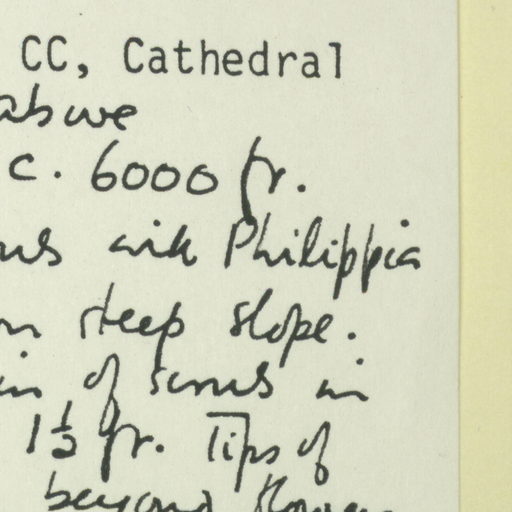 CC, Cathedral
above
c. 6000 ft.
with Philippia
steep slope.
of scrub in
1½ ft. Tips of
beyond flowers